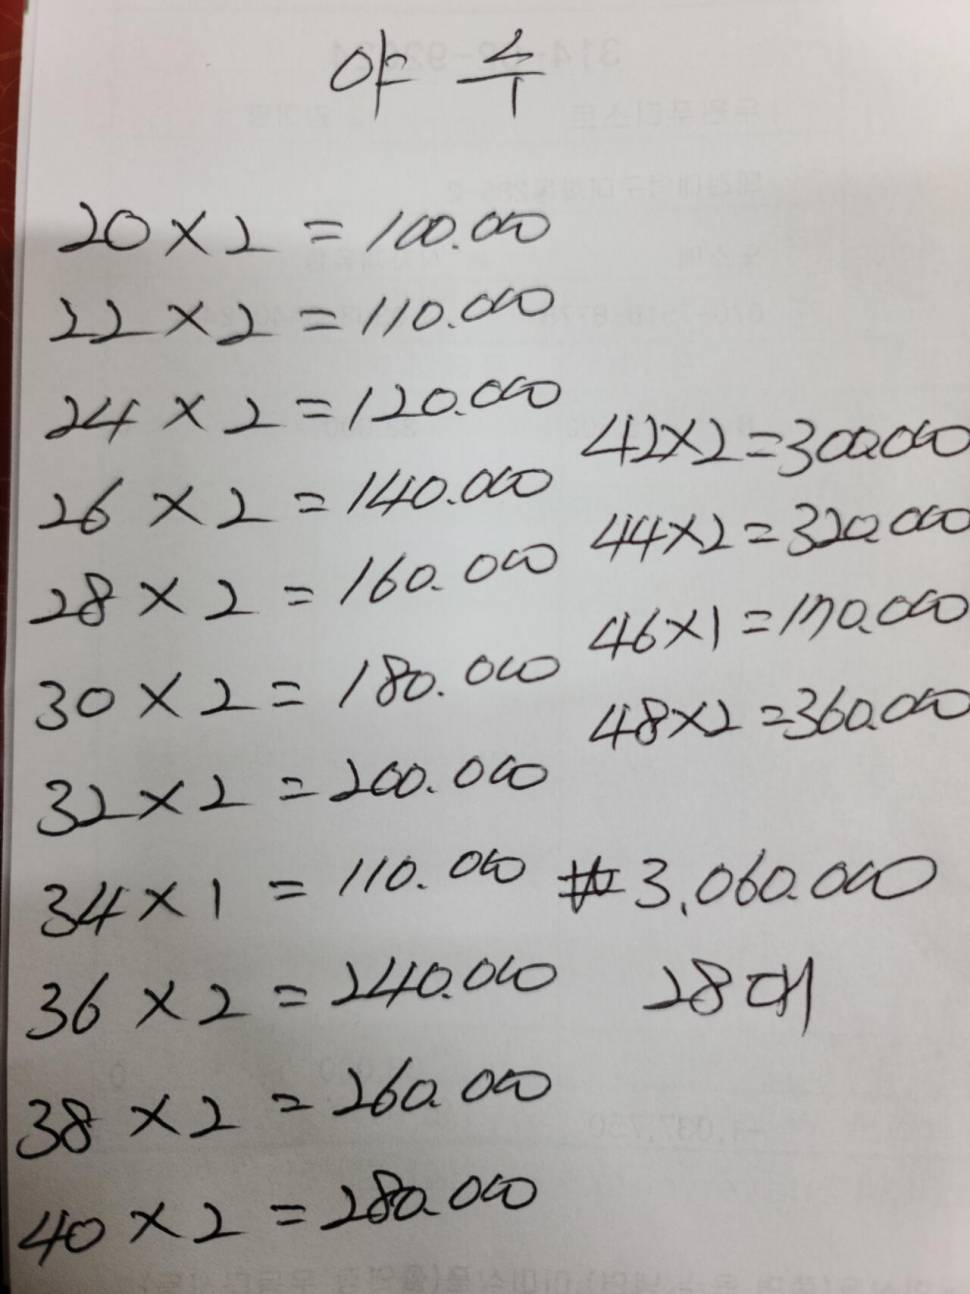 야수
20 × 2 = 100.000
22 × 2 = 110.000
24 × 2 = 120.000
26 × 2 = 140.000
28 × 2 = 160.000
30 × 2 = 180.000
32 × 2 = 200.000
34 × 1 = 110.000
36 × 2 = 240.000
38 × 2 = 260.000
40 × 2 = 280.000
42×2=300.000
44×2=320.000
46×1=170.000
48×2=360.000
₩3,060.000
28대